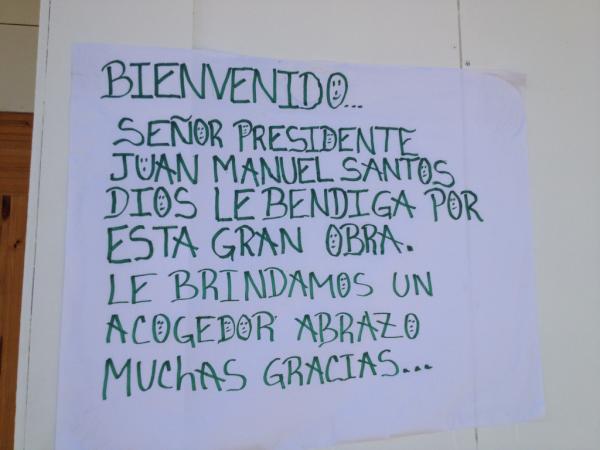 BIENVENIDO...
SEÑOR PRESIDENTE
JUAN MANUEL SANTOS
DIOS LE BENDIGA POR
ESTA GRAN OBRA.
LE BRINDAMOS UN
ACOGEDOR ABRAZO
MUChAS GRACIAS...